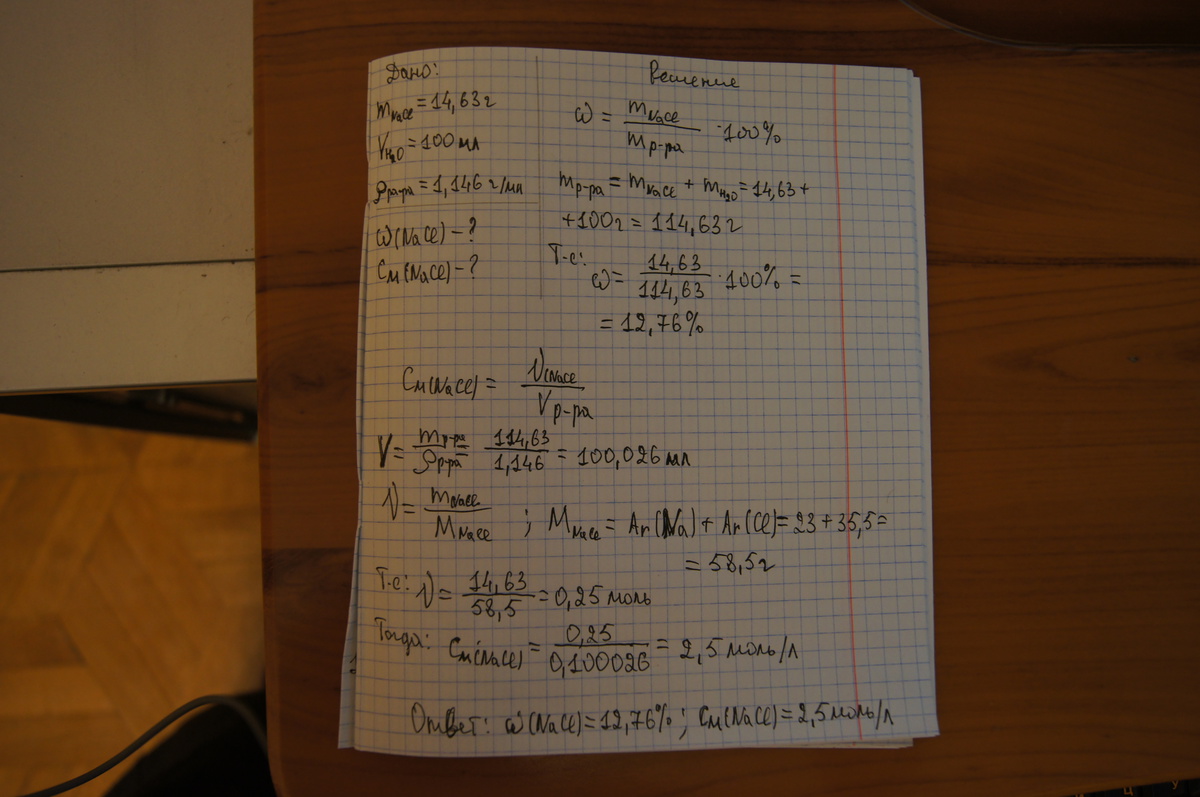 Дано:
m NaCl = 14,63 г
V H2O = 100 мл
ρ р-ра = 1,146 г/мл
ω(NaCl) - ?
Cм(NaCl) - ?
Решение
ω = m NaCl / m р-ра · 100%
m р-ра = m NaCl + m H2O = 14,63 +
+ 100 г = 114,63 г
Т-е: ω = 14,63 / 114,63 · 100% =
= 12,76%
Cм(NaCl) = ν(NaCl / V р-ра
V = m р-ра / ρ р-ра = 114,63 / 1,146 = 100,026 мл
ν = m NaCl / M NaCl ; M NaCl = Ar(Na) + Ar(Cl) = 23 + 35,5 =
= 58,5 г
Т-е: ν = 14,63 / 58,5 = 0,25 моль
Тогда: Cм(NaCl) = 0,25 / 0,100026 = 2,5 моль/л
Ответ: ω(NaCl) = 12,76% ; Cм(NaCl) = 2,5 моль/л